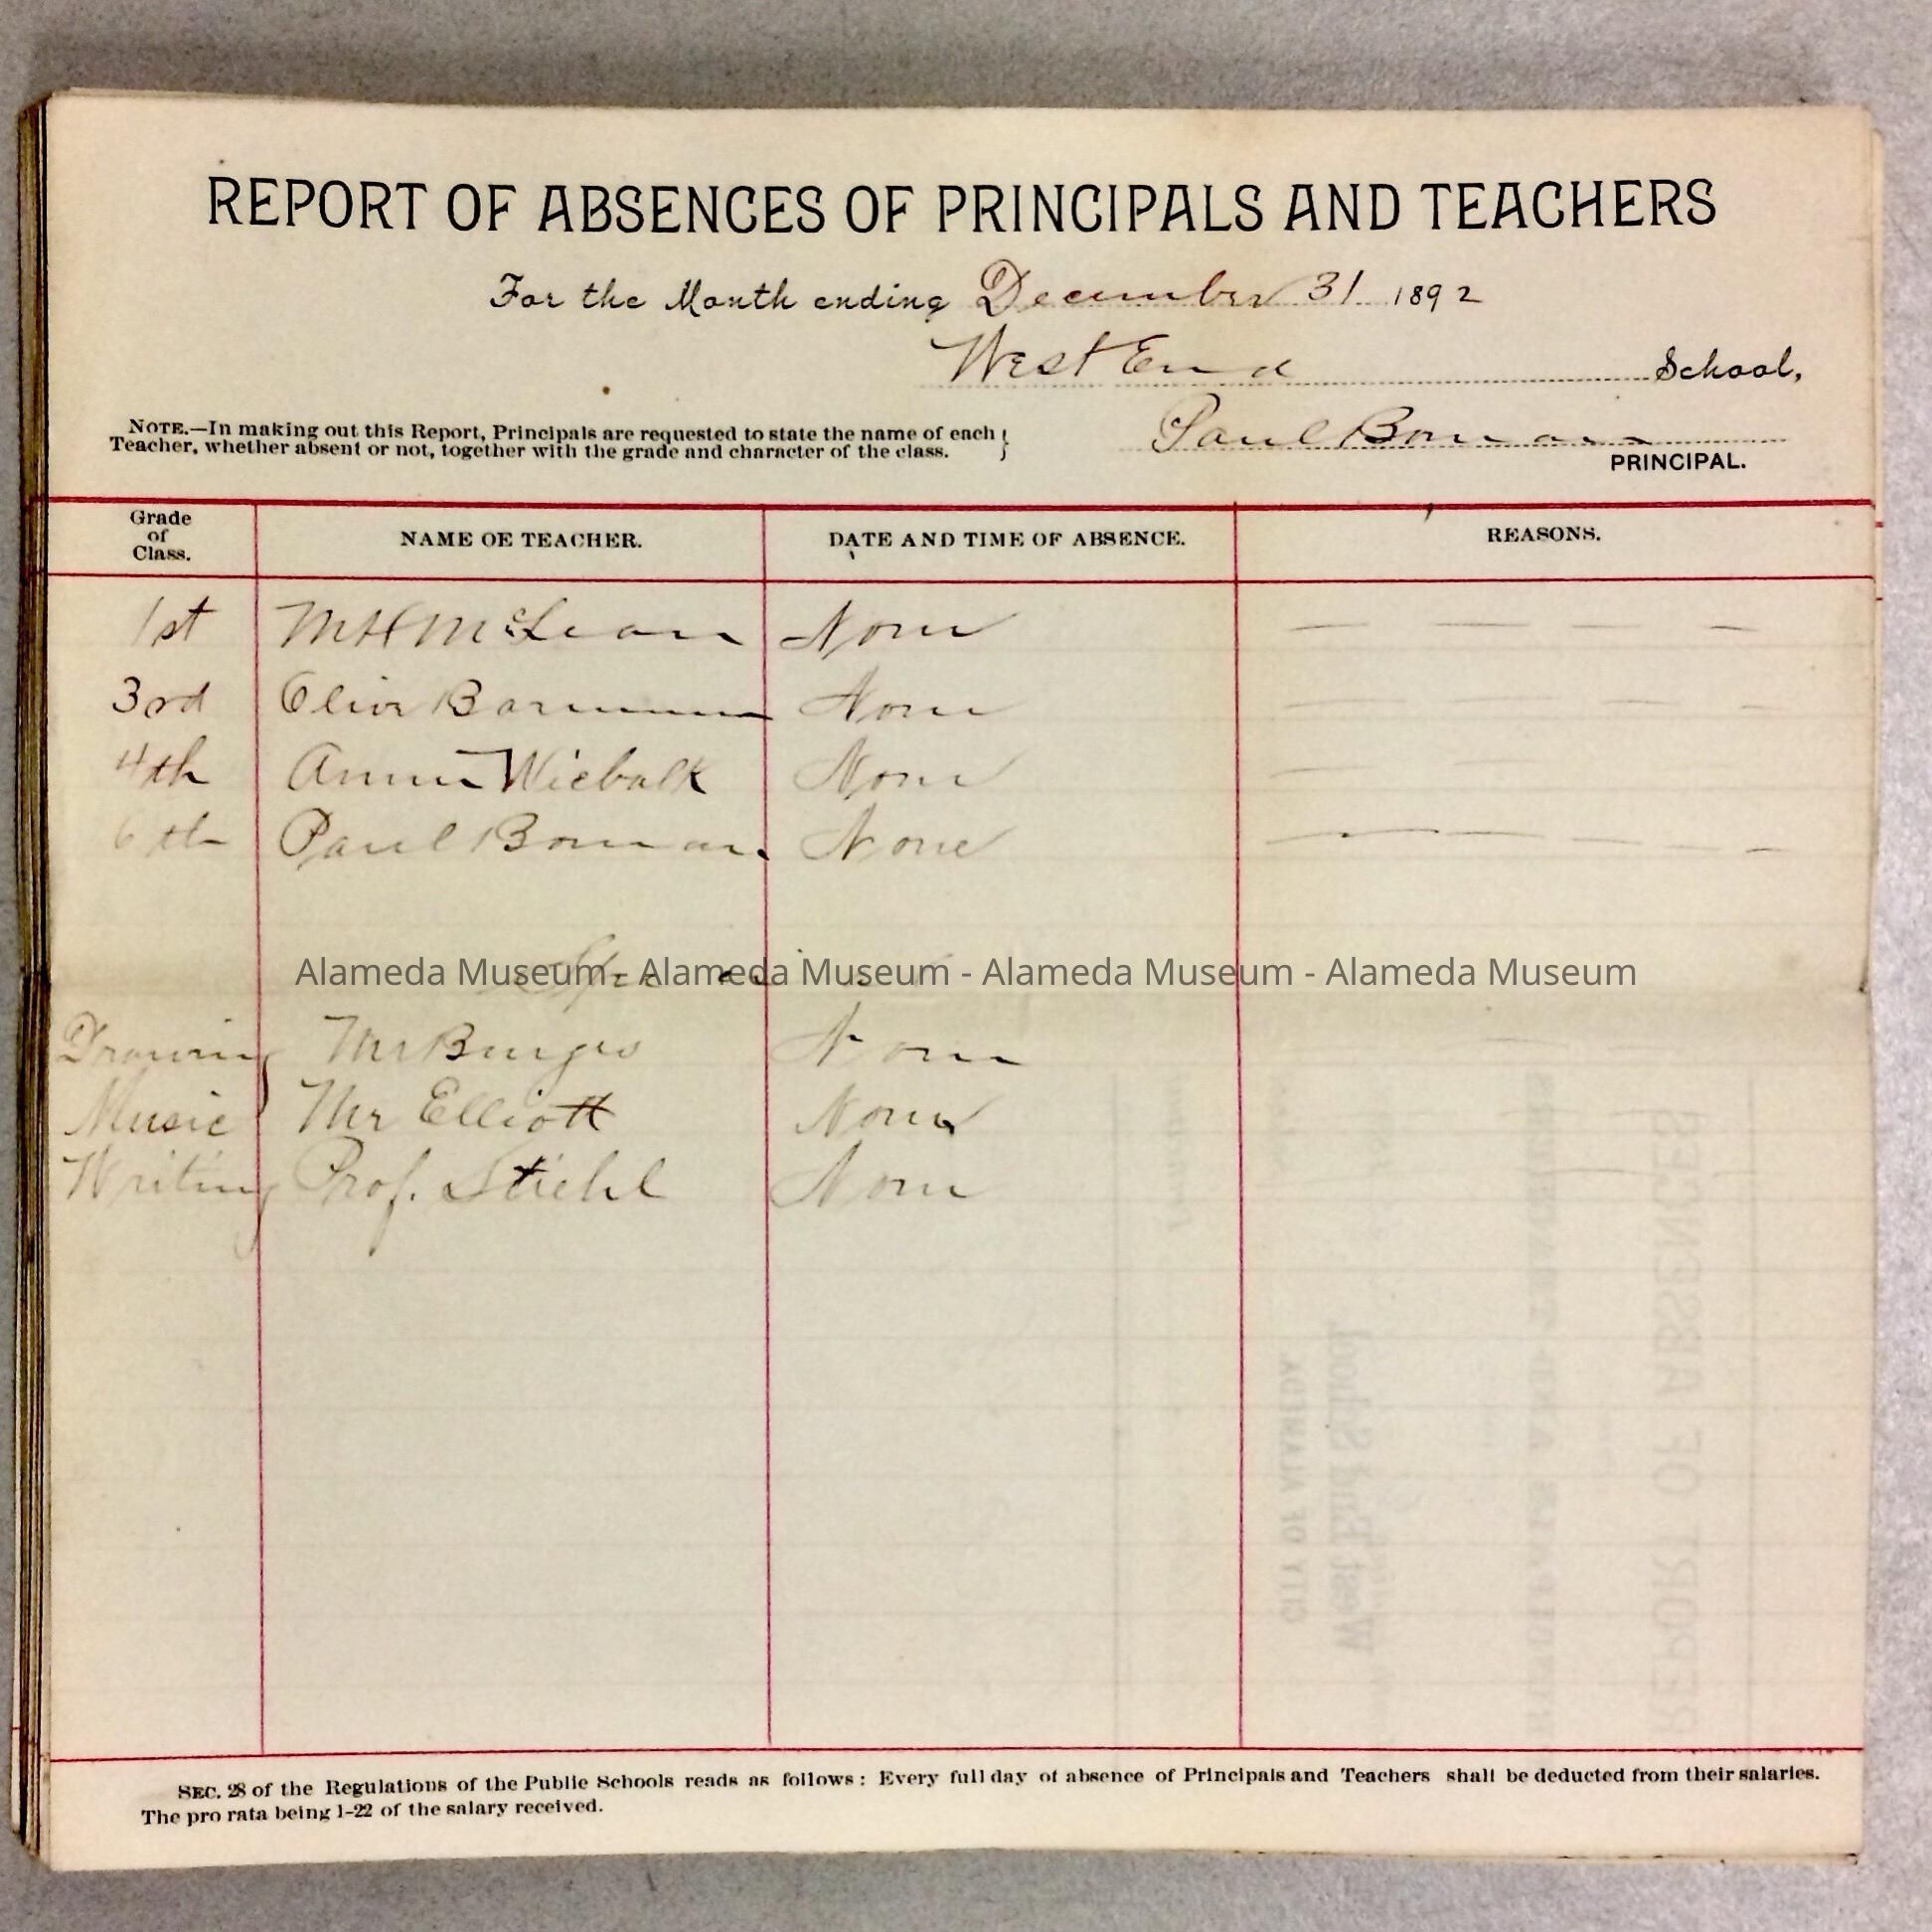 REPORT OF ABSENCES OF PRINCIPALS AND TEACHERS
For the Month ending December 31 1892
West End School,
NOTE.—In making out this Report, Principals are requested to state the name of each
Teacher, whether absent or not, together with the grade and character of the class.
Paul Boman
PRINCIPAL.
Grade of Class. NAME OE TEACHER. DATE AND TIME OF ABSENCE. REASONS.
1st M H McLean None
3rd Olive Barmann None
4th Annie Wiebalk None
6th Paul Boman None
Alameda Museum - Alameda Museum - Alameda Museum - Alameda Museum
Drawing Mr Burges None
Music Mr Elliott None
Writing Prof. Stiehl None
CITY OF ALAMEDA.
West End School
REPORT OF ABSENCES
SEC. 28 of the Regulations of the Public Schools reads as follows: Every full day of absence of Principals and Teachers shall be deducted from their salaries.
The pro rata being 1-22 of the salary received.